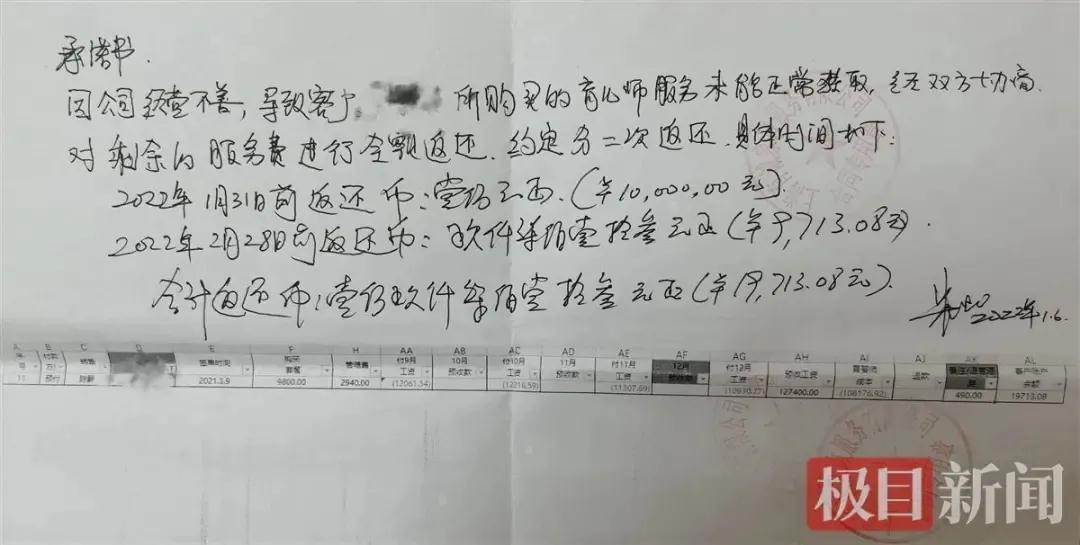 承诺书.
因公司经营不善, 导致客户 所购买的育儿师服务未能正常获取, 经双方协商
对剩余的服务费进行全额返还. 约定分二次返还. 具体时间如下:
2022年1月31日前返还币:壹仟元正.(¥10,000,00元)
2022年2月28日前返还币: 玖仟柒佰壹拾叁元正(¥9,713.08元).
合计返还币:壹仟玖仟柒佰壹拾叁元正(¥19,713.08元).
2022年1.6.
A B C D E F H AA AB AC AD AE AF AG AH AI AJ AK AL
付款 销售 签单时间 购买套餐 管理费 付9月工资 10月预收款 付10月工资 11月预收款 付11月工资 12月预收款 付12月工资 预收工资 育婴师成本 退款 客户账户余额
2021.3.9 9800.00 2940.00 (12061.54) (11307.69) 127400.00 (108176.92) 490.00 19713.08
极目新闻